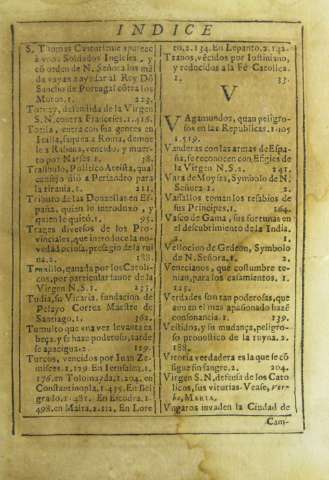 INDICE
S. Thomas Cantuariense aparece
à vnos Soldados Ingleses, y
cō orden de N. Señora los mā
da vayan a ayudar al Rey Dō
Sancho de Portugal cōtra los
Moros. 1. 223.
Tornay, defendida de la Virgen
S.N. contra Franceses. 1. 416.
Totila, entra con sus gentes en
Italia, saquea a Roma, demue
le a Rabena, vencido, y muer-
to por Narses. 1. 38.
Trasibulo, Politico Ateista, qual
consejo diò a Periandro para
la tirania. 1. 211.
Tributo de las Donzellas en Es-
paña, quien lo introduxo, y
quien le quitò. 1. 95.
Trages diversos de los Pro-
vinciales, que introduce la no-
vedad ociosa, presagio de la rui
na. 2. 188.
Truxillo, ganada por los Catoli-
cos, por particular favor de la
Virgen N.S. 1. 233.
Tudia, su Vicaria, fundacion de
Pelayo Correa Maestre de
Santiago. 1. 362.
Tumulto que a vna vez levanta ca
beça, y se haze poderoso, tarde
se apacigua. 2. 129.
Turcos, vencidos por Iuan Ze-
misces. 1. 129. En Ierusalen. 1.
176. en Tolomayda. 1. 204. en
Constantinopla. 1. 435. En Bel
grado. 1. 481. En Escodra. 1.
498. en Malta. 2. 112. En Lore
to, 2. 134. En Lepanto. 2. 142.
Tzanos, vēcidos por Iustiniano,
y reducidos a la Fè Catolica.
1. 33.
V
VAgamundos, quan peligro-
sos en las Republicas. 1. 405
1. 519.
Vanderas con las armas de Espa-
ña, se reconocen con Efigies de
la Virgen N.S. 2. 241.
Vara de Moyses, Symbolo de N.
Señora. 1. 2.
Vasallos toman los resabios de
sus Principes. 1. 164.
Vasco de Gama, sus fortunas en
el descubrimiento de la India.
2. 1.
Vellocino de Gedeon, Symbolo
de N. Señora. 1. 2.
Venecianos, que costumbre te-
nian, para los casamientos. 1.
125.
Verdades son tan poderosas, que
aun en el mas apasionado hazē
consonancia. 1. 139.
Vestidos, y su mudança, peligro-
so pronostico de la ruyna. 2.
188.
Vitoria verdadera es la que se cō
sigue sin sangre. 2. 204.
Virgen S. N. defensa de los Cato
licos, sus vitorias. Vease, ver-
bo, MARIA.
Vngaros invaden la Ciudad de
Cam-